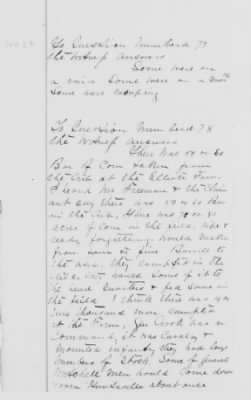 To Question Numberd 77
the Witness Answers
Some were on
a raid Some were on a
Some were Camping
To Question Numberd 78
the Witness Answers
There was 50 or 60
Bu of Corn taken from
the Crib at the Elliott Farm
I heard Mr Freeman & the Claim
ant say there was 50 or 60 Bu
in the Crib, there was 70 or 80
acres of Corn in the field, what
ready for gathering, would make
from to five Barrels to
the acre, they camped in the
field, of it to
the head quarters & fed Some in
the field I think there was
thousand men, camped
at the Farm, Gen Crook was in
Command, it was Cavalry &
Mounted infantry, they had large
numbers of Stock, Some of General
Mitchell Men would Come down
from Huntsville about once